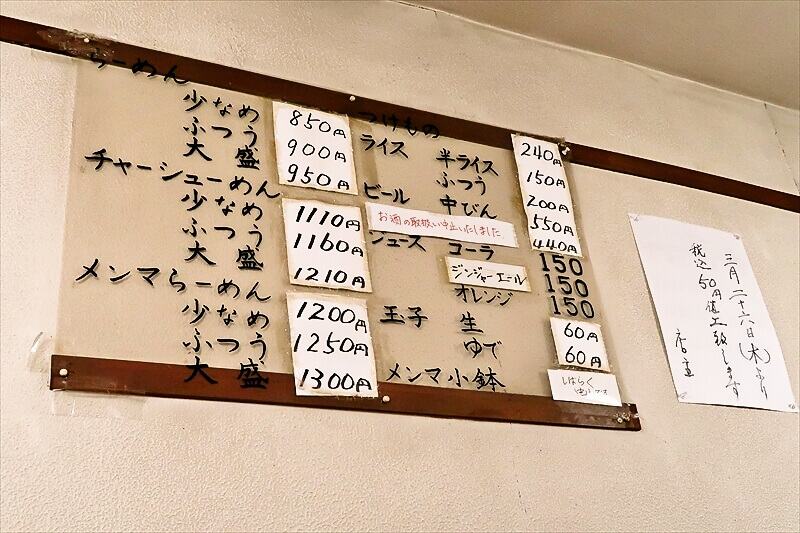 らーめん
少なめ 850円
ふつう 900円
大盛 950円
チャーシューめん
少なめ 1110円
ふつう 1160円
大盛 1210円
メンマらーめん
少なめ 1200円
ふつう 1250円
大盛 1300円
つけもの 240円
ライス 半ライス 150円
ふつう 200円
ビール 中びん 550円
お酒の取扱い中止いたしました
440円
ジュース コーラ 150
ジンジャーエール 150
オレンジ 150
玉子 生 60円
ゆで 60円
メンマ小鉢 しばらく
中止です
三月二十六日(木)より
税込50円値上致します
店主